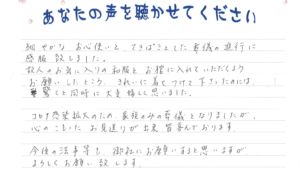 あなたの声を聴かせてください
細やかな お心使いと、てきぱきとした 葬儀の進行に
感服 致しました。
故人のお気に入りの和服と お棺に入れていただくよう
お願いしたところ、きれいに着せて下さいたのには、
驚くと同時に 大変 嬉しく思いました。
コロナ感染拡大のため 家族のみの葬儀となりましたが、
心のこもった お見送りが出来 皆喜んでおります。
今後の法事等も 御社にお願いすると思いますが
よろしくお願い 致します。